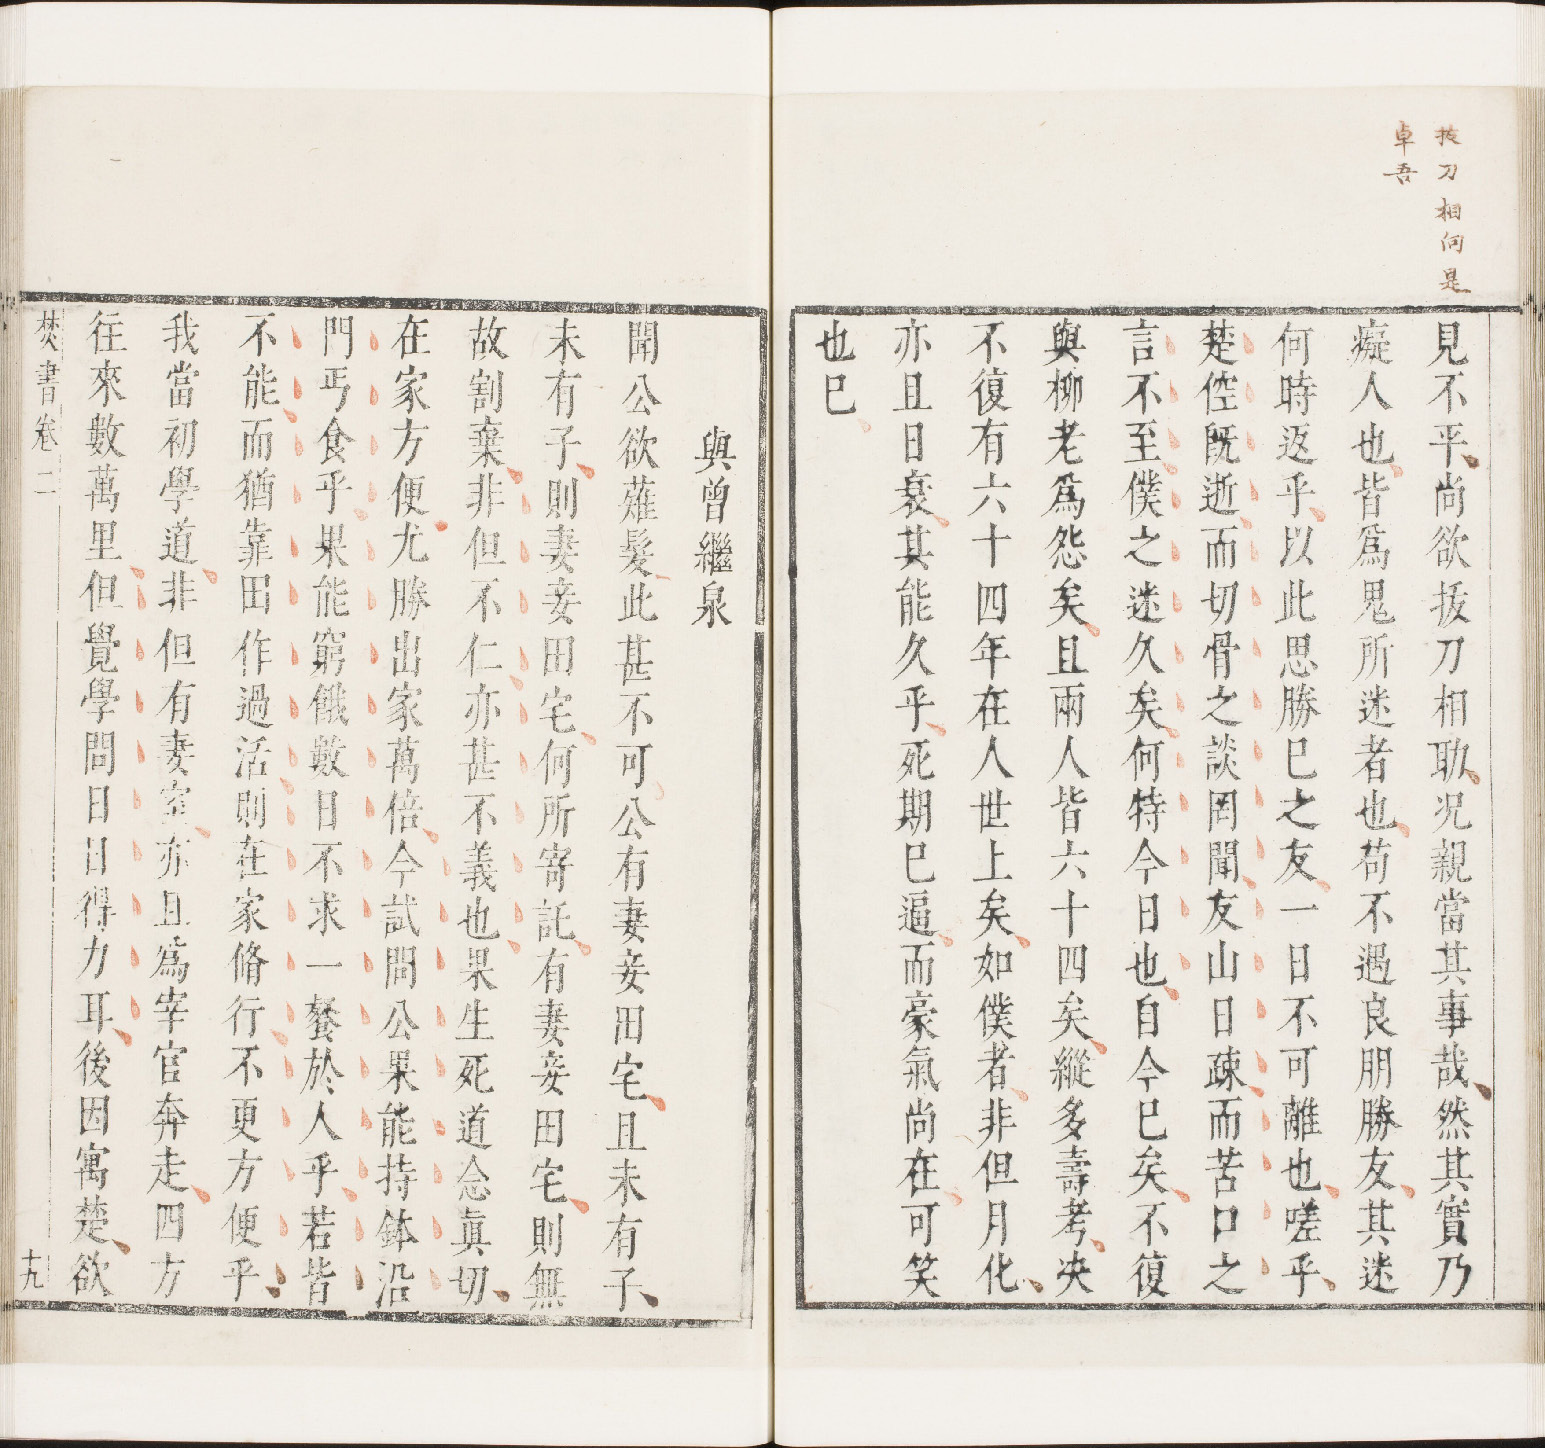 拔刀相向是
卓吾
見不平尚欲拔刀相助况親當其事哉然其實乃
癡人也皆爲鬼所迷者也茍不遇良朋勝友其迷
何時返乎以此思勝巳之友一日不可離也嗟乎
楚倥既逝而切骨之談罔聞友山日疎而苦口之
言不至僕之迷久矣何特今日也自今巳矣不復
與柳老爲怨矣且兩人皆六十四矣縱多壽考决
不復有六十四年在人世上矣如僕者非但月化
亦且日衰其能久乎死期巳逼而豪氣尚在可笑
也巳
與曾繼泉
聞公欲薙髮此甚不可公有妻妾田宅且未有子
未有子則妻妾田宅何所寄託有妻妾田宅則無
故割棄非但不仁亦甚不義也果生死道念眞切
在家方便尤勝出家萬倍今試問公果能持鉢沿
門丐食乎果能窮餓數日不求一餐於人乎若皆
不能而猶靠田作過活則在家脩行不更方便乎
我當初學道非但有妻室亦且爲宰官奔走四方
往來數萬里但覺學問日日得力耳後因寓楚欲
焚書卷二
十九